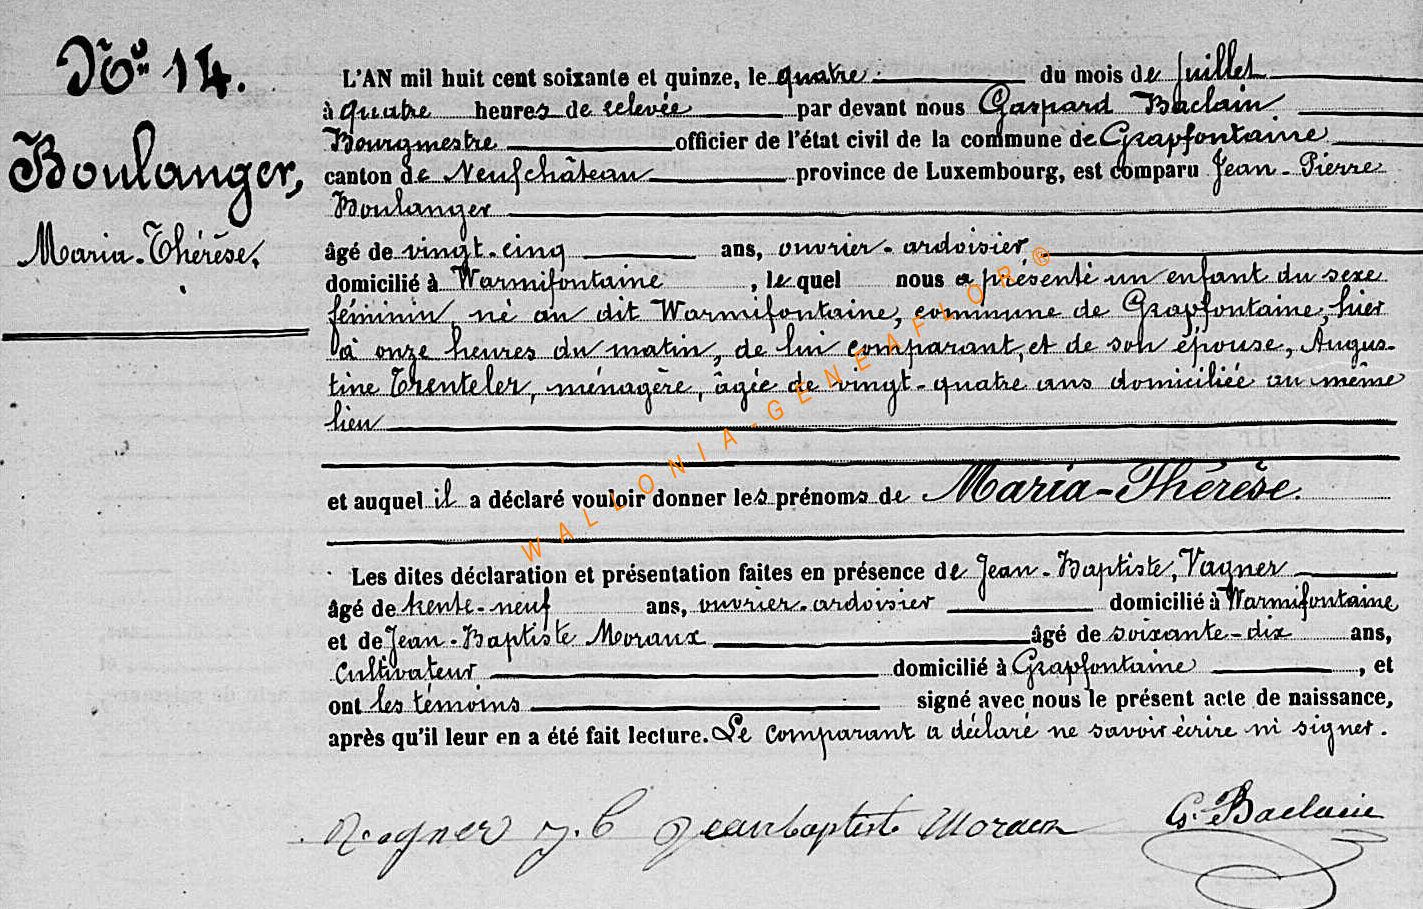 N° 14.
Boulanger,
Maria-Thérèse.
L'AN mil huit cent soixante et quinze, le quatre du mois de juillet
à quatre heures de relevée par devant nous Gaspard Baclain
Bourgmestre officier de l'état civil de la commune de Grapfontaine
canton de Neufchâteau province de Luxembourg, est comparu Jean-Pierre
Boulanger
âgé de vingt-cinq ans, ouvrier-ardoisier
domicilié à Warmifontaine, le quel nous a présenté un enfant du sexe
féminin, né au dit Warmifontaine, commune de Grapfontaine, hier
à onze heures du matin, de lui comparant, et de son épouse, Augus-
tine Trenteler, ménagère, âgée de vingt-quatre ans domiciliée au même
lieu
et auquel il a déclaré vouloir donner les prénoms de Maria-Thérèse.
Les dites déclaration et présentation faites en présence de Jean-Baptiste, Vagner
âgé de trente-neuf ans, ouvrier-ardoisier domicilié à Warmifontaine
et de Jean-Baptiste Moraux âgé de soixante-dix ans,
Cultivateur domicilié à Grapfontaine, et
ont les témoins signé avec nous le présent acte de naissance,
après qu'il leur en a été fait lecture. Le comparant a déclaré ne savoir écrire ni signer.
Wagner J. B Jean baptiste Moraux G. Baclain
WALLONIA-GENEAFLOR®